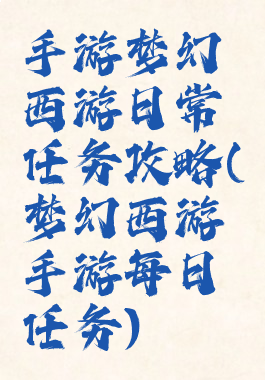 手游梦幻
西游日常
任务攻略(
梦幻西游
手游每日
任务)